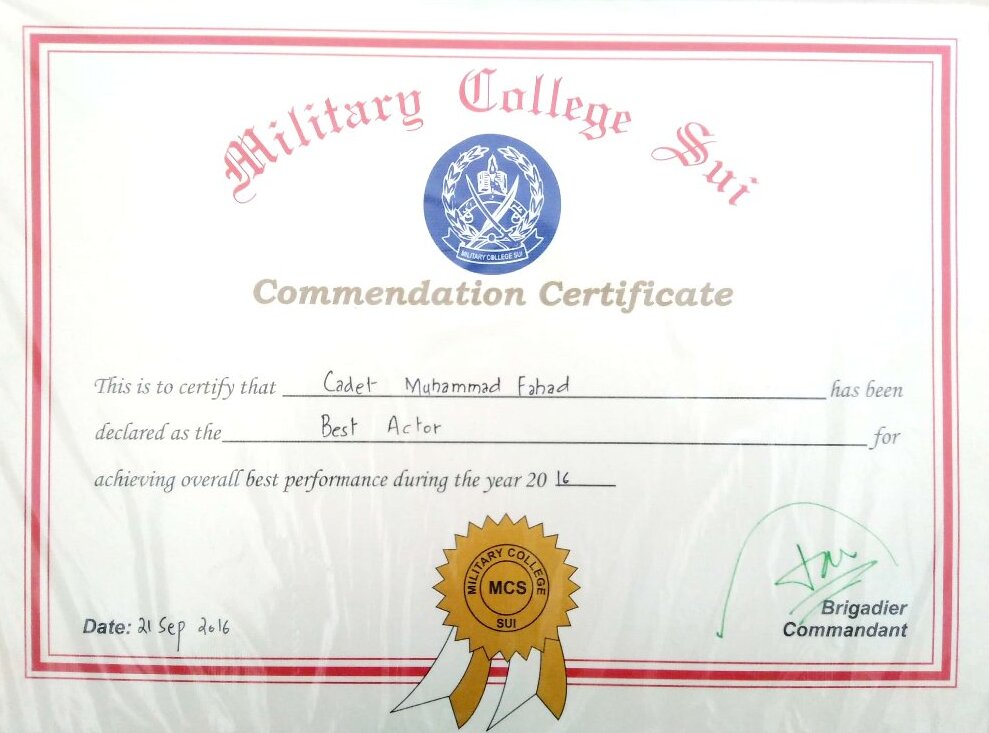 Military College Sui
MILITARY COLLEGE SUI
Commendation Certificate
This is to certify that Cadet Muhammad Fahad has been
declared as the Best Actor for
achieving overall best performance during the year 20 16
MILITARY COLLEGE
MCS
SUI
Date: 21 Sep 2016
Brigadier
Commandant